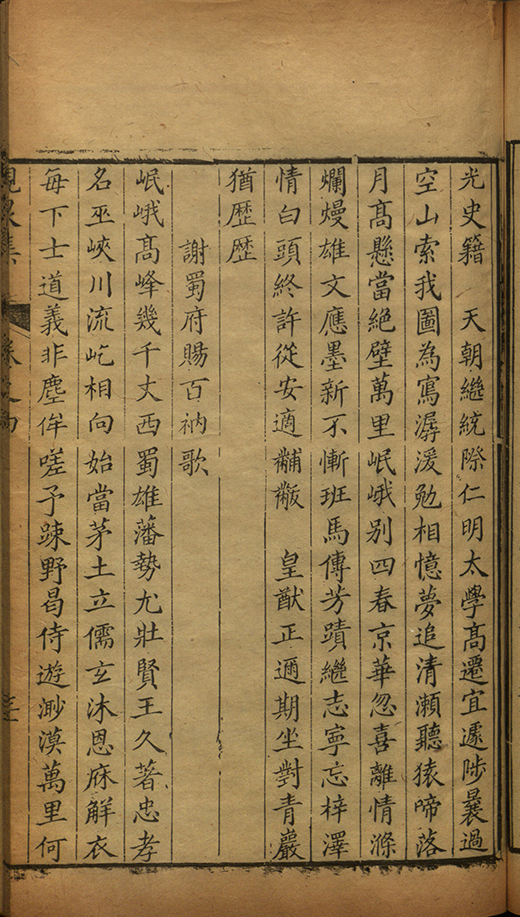 光史籍　天朝繼統際仁明太學髙遷宜遽陟曩過
空山索我圖為寫潺湲勉相憶夢追清瀨聽猿啼落
月髙懸當絕壁萬里岷峨別四春京華忽喜離情滌
爛熳雄文應墨新不慚班馬傳芳蹟繼志寧忘梓澤
情白頭終許從安適黼黻　皇猷正邇期坐對青巖
猶歷歷
謝蜀府賜百衲歌
岷峨髙峰幾千丈西蜀雄藩勢尤壯賢王久著忠孝
名巫峽川流屹相向始當茅土立儒玄沐恩庥解衣
每下士道義非塵侔嗟予踈野曷侍遊渺漠萬里何